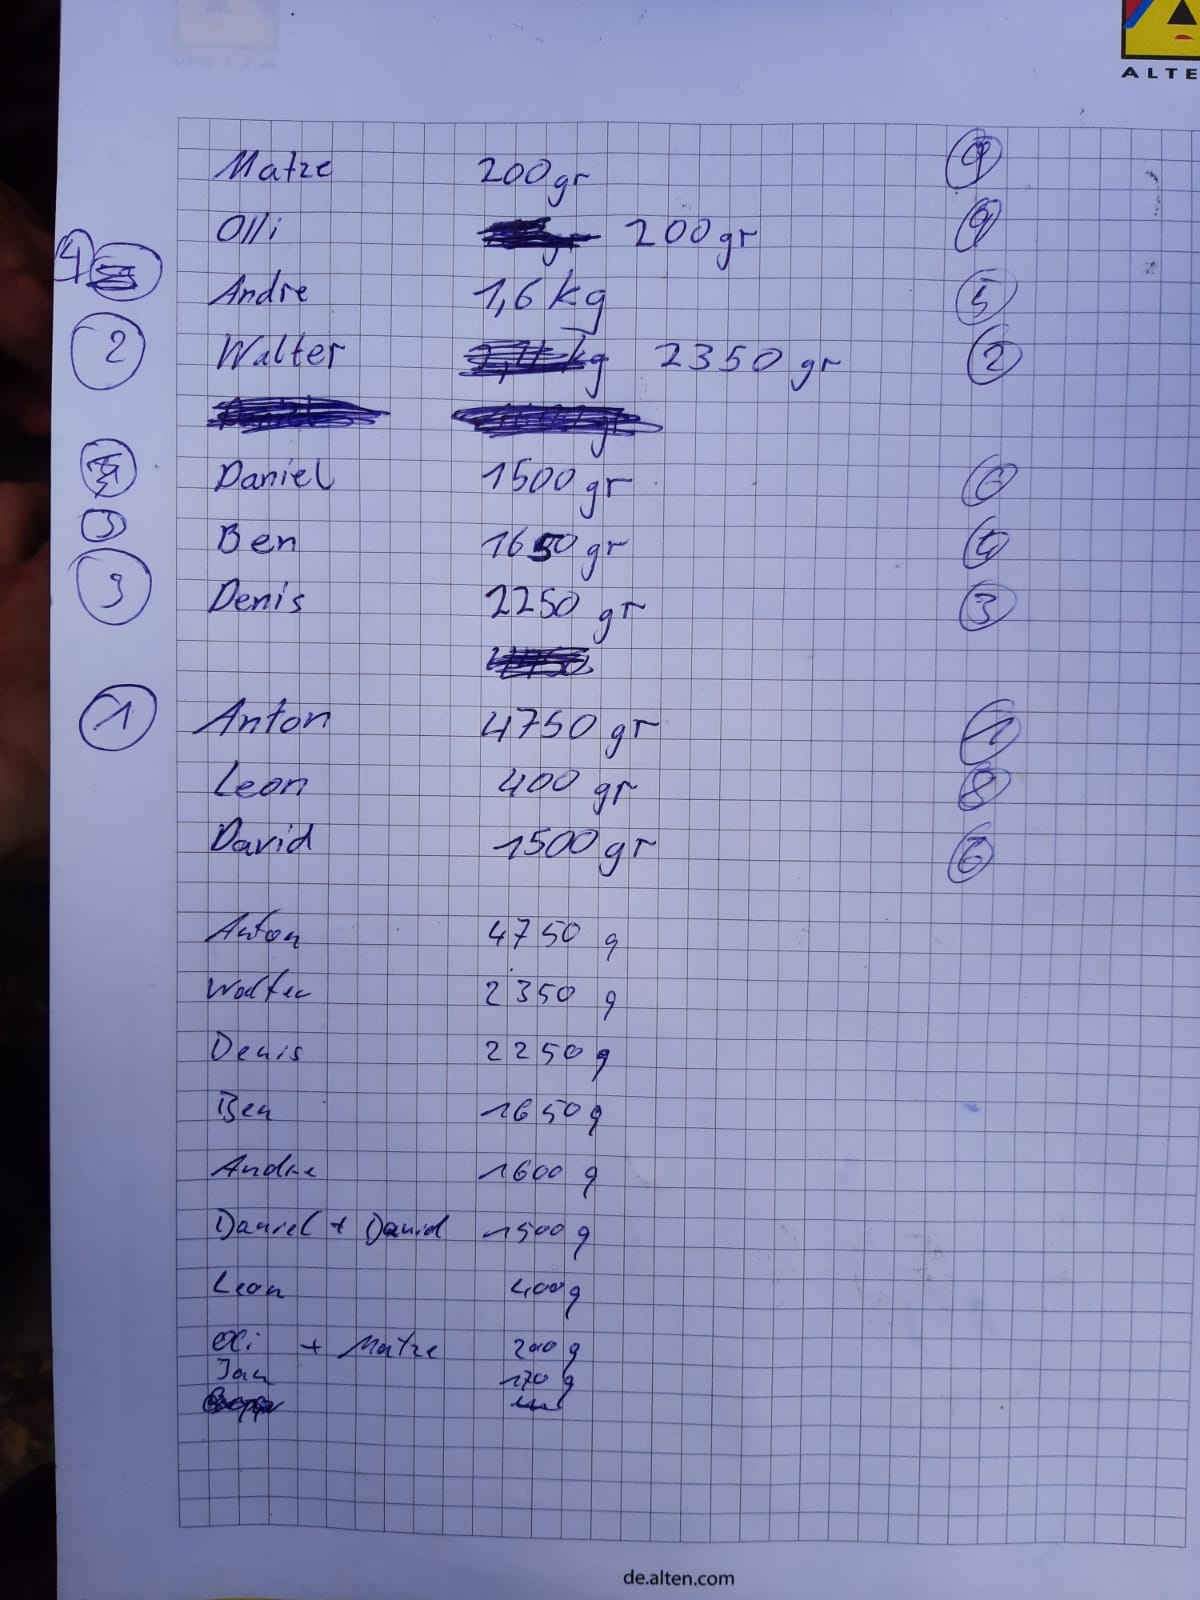 ALTE
Matze 200gr 9
Olli 200gr 9
4
Andre 1,6 kg 5
2 Walter kg 2350 gr 2
Daniel 1500 gr 6
Ben 1650 gr 4
3 Denis 2250 gr 3
1 Anton 4750 gr 1
Leon 400 gr 8
David 1500 gr 6
Anton 4750 g
Walter 2350 g
Denis 2250 g
Ben 1650 g
Andre 1600 g
Daniel + David 1500 g
Leon 400g
Olli + Matze 200 g
Jan 170 g
de.alten.com